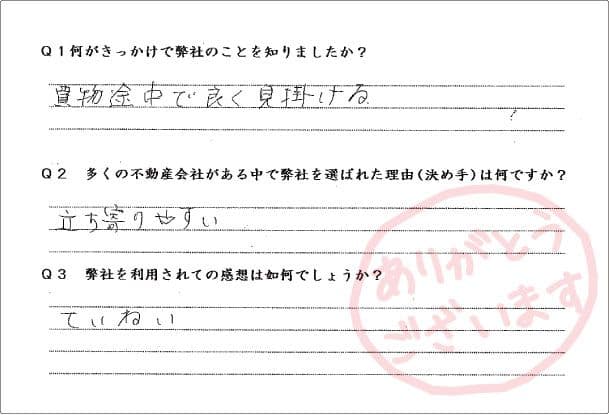 Q1何がきっかけで弊社のことを知りましたか?
買物途中で良く見掛ける
Q2 多くの不動産会社がある中で弊社を選ばれた理由(決め手)は何ですか?
立ち寄りやすい
Q3 弊社を利用されての感想は如何でしょうか?
ていねい
ありがとう
ございます